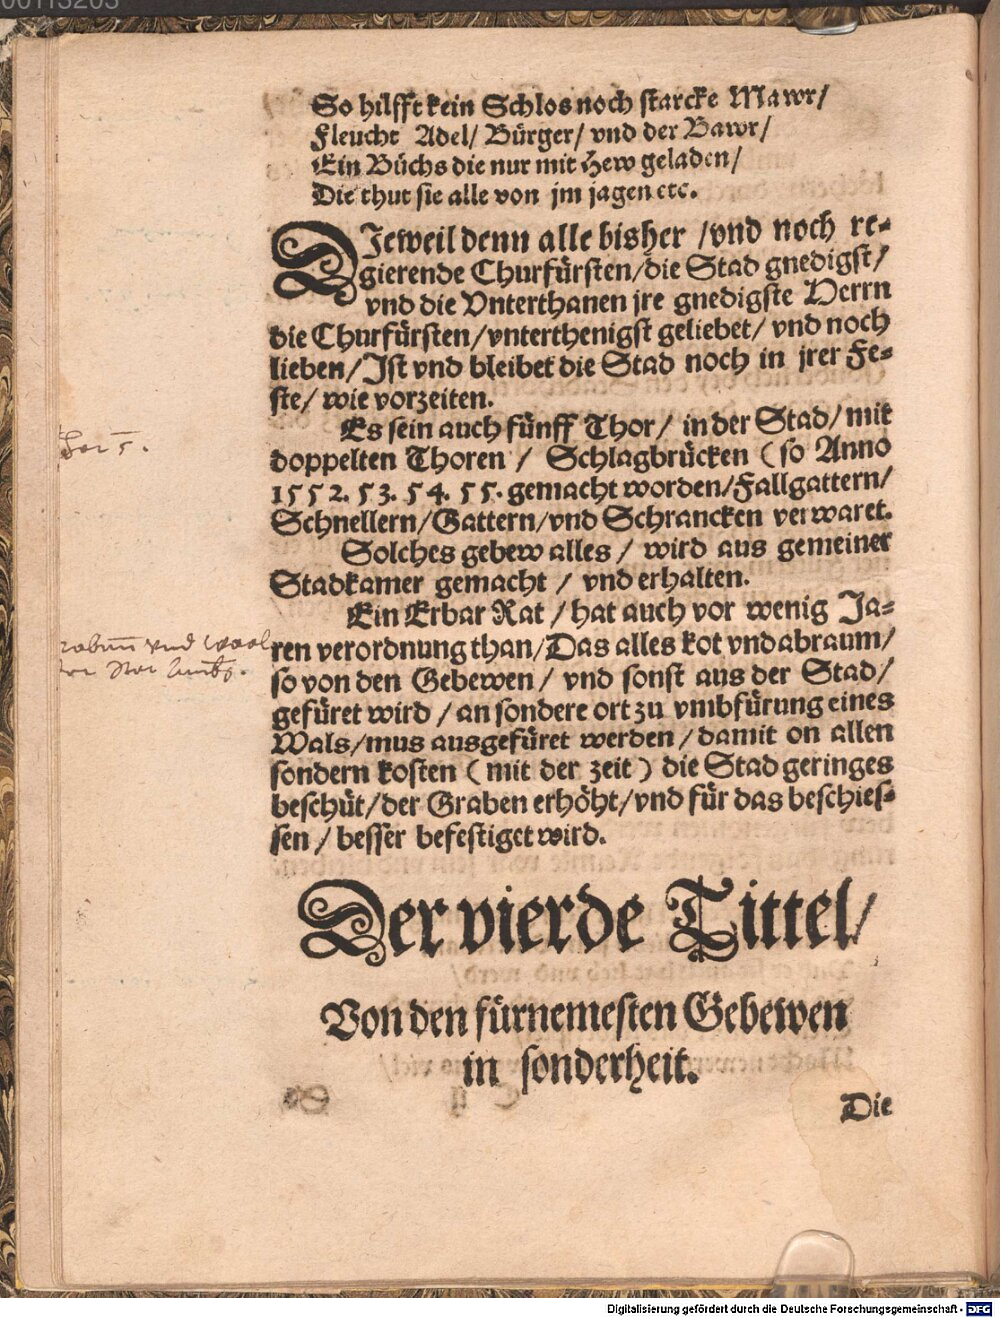 So hilfft kein Schlos noch starcke Mawr/
Fleucht Adel/ Bürger/ vnd der Bawr/
Ein Büchs die nur mit Hew geladen/
Die thut sie alle von jm jagen etc.
DJeweil denn alle bisher /vnd noch re-
gierende Churfürsten/die Stad gnedigst/
vnd die Vnterthanen jre gnedigste Herrn
die Churfürsten/vnterthenigst geliebet/ vnd noch
lieben/Jst vnd bleibet die Stad noch in jrer Fe-
ste/ wie vorzeiten.
Es sein auch fünff Thor/ in der Stad/ mit
doppelten Thoren / Schlagbrücken (so Anno
1552. 53. 54. 55. gemacht worden/Fallgattern/
Schnellern/Gattern/vnd Schrancken verwaret.
Solches gebew alles / wird aus gemeiner
Stadkamer gemacht / vnd erhalten.
Ein Erbar Rat / hat auch vor wenig Ja-
ren verordnung than/Das alles kot vnd abraum/
so von den Gebewen/ vnd sonst aus der Stad/
gefüret wird / an sondere ort zu vmbfürung eines
Wals/mus ausgefüret werden / damit on allen
sondern kosten ( mit der zeit ) die Stad geringes
beschüt/der Graben erhöht/vnd für das beschies-
sen / besser befestiget wird.
Der vierde Tittel/
Von den fürnemesten Gebewen
in sonderheit.
Die
Digitalisierung gefördert durch die Deutsche Forschungsgemeinschaft - DFG